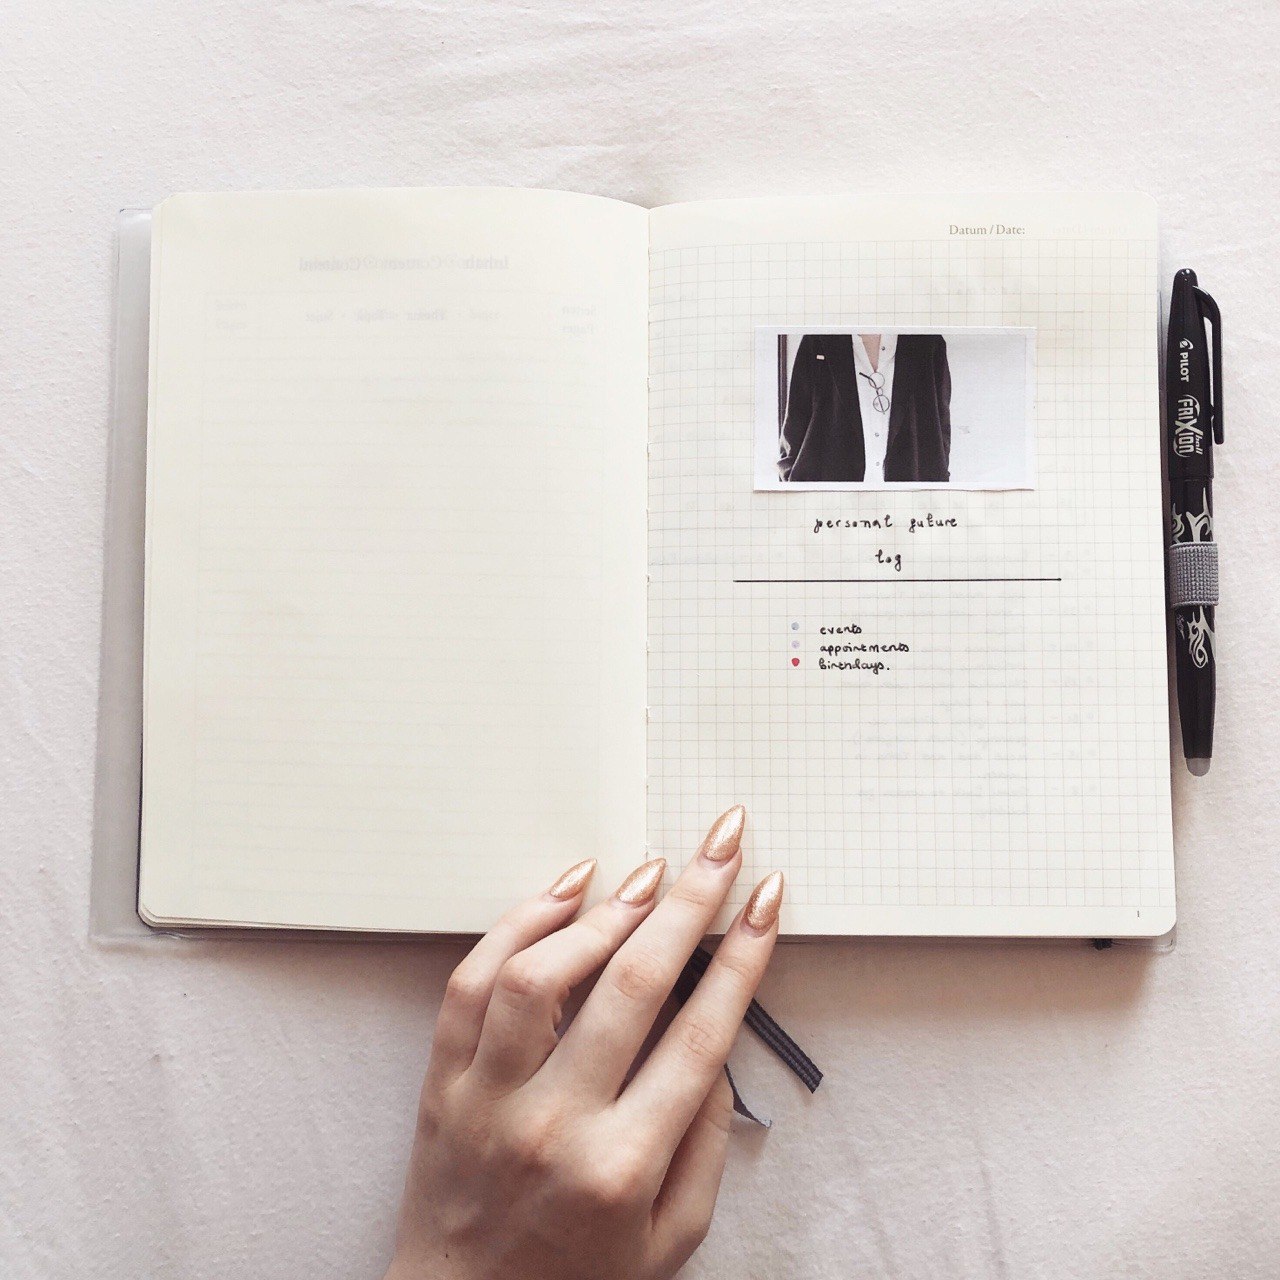 Datum / Date:
personal future
log
events
appointments
birthdays.
1
PILOT
FRIXION ball